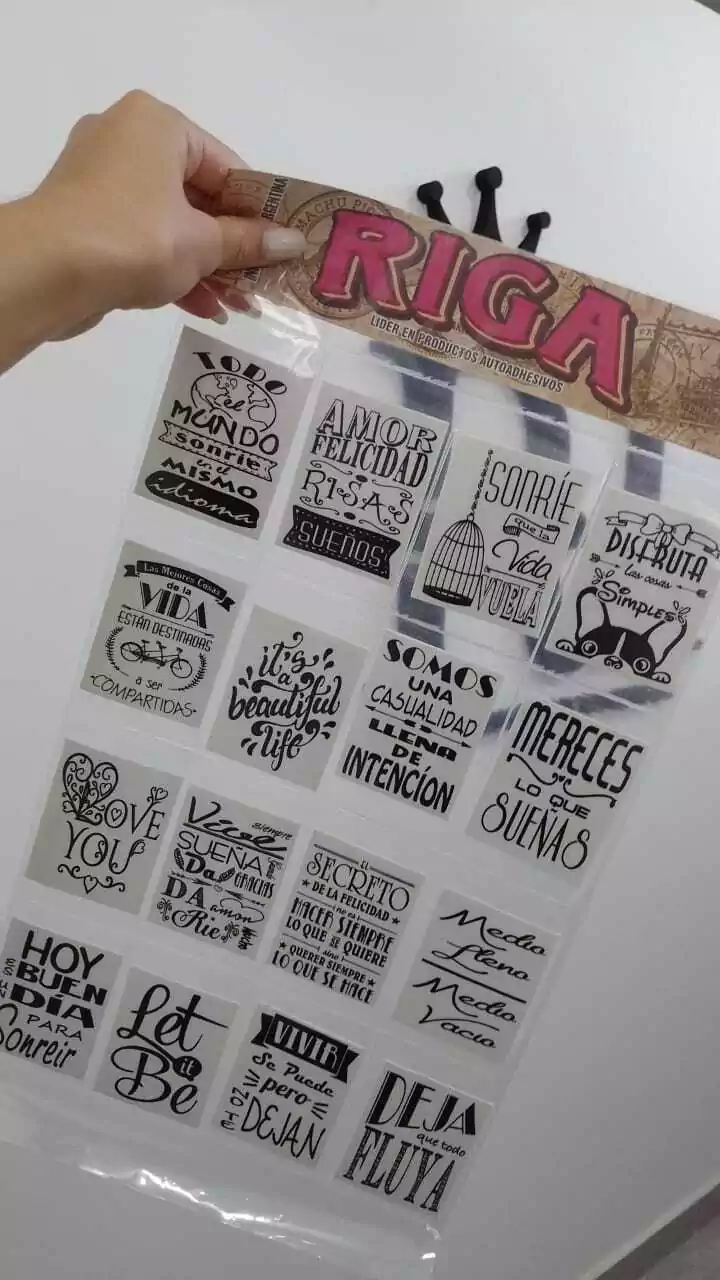 ARGENTINA
MACHU PIC
RIGA
LIDER EN PRODUCTOS AUTOADHESIVOS
TODO
el
MUNDO
sonríe
en el
MISMO
idioma
AMOR
FELICIDAD
RISAS
SUEÑOS
SONRÍE
que la
Vida
VUELA
DISFRUTA
las cosas
Simples
Las Mejores Cosas
de la
VIDA
ESTÁN DESTINADAS
a ser
COMPARTIDAS
it's
a
beautiful
life
SOMOS
UNA
CASUALIDAD
LLENA
DE
INTENCÍON
MERECES
LO QUE
SUEÑAS
LOVE
YOU
Vive siempre
SUEÑA
Da GRACIAS
DA amor
Ríe
EL
SECRETO
DE LA FELICIDAD
no es
HACER SIEMPRE
LO QUE SE QUIERE
sino
QUERER SIEMPRE
LO QUE SE HACE
Medio
Lleno
Medio
Vacío
HOY
ES UN
BUEN
DÍA
PARA
Sonreir
Let
it
Be
VIVIR
Se Puede
pero
NO TE
DEJAN
DEJA
que todo
FLUYA